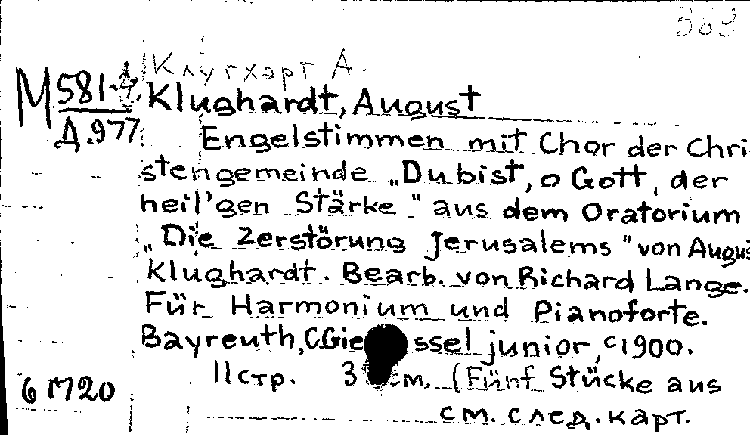 Клугхарт А.
М 581-4
Д.977
Klughardt, August
Engelstimmen mit Chor der Chri
stengemeinde „Du bist, o Gott, der
heil'gen Stärke" aus dem Oratorium
„Die Zerstörung Jerusalems" von Augus
Klughardt. Bearb. von Richard Lange.
Für Harmonium und Pianoforte.
Bayreuth, C.Gie ssel junior, c1900.
11 стр. 3 см. (Fünf Stücke aus
см. след. карт.
6 М20